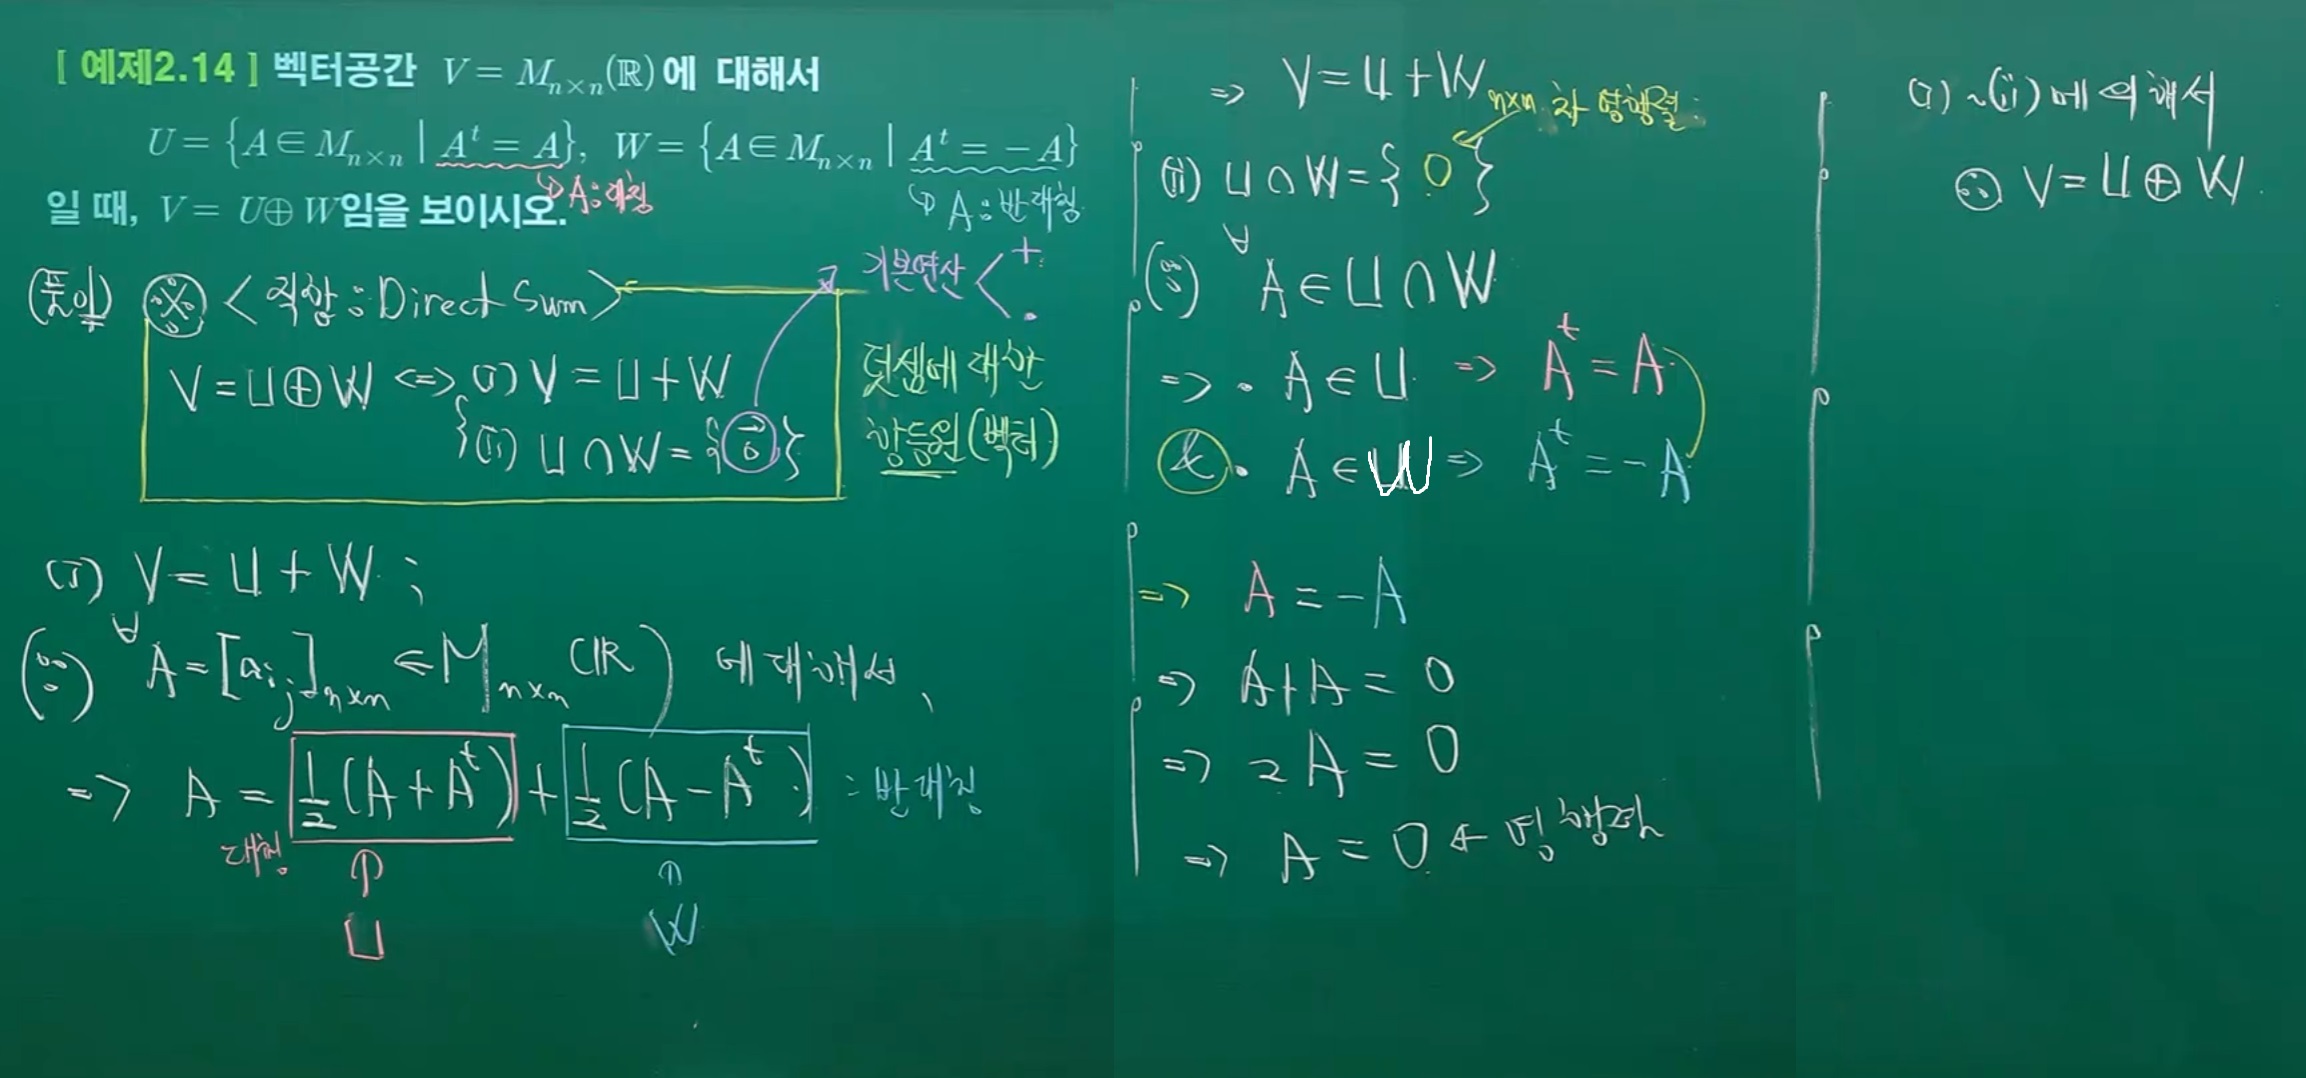 [ 예제2.14 ] 벡터공간 V = M_{n×n}(ℝ)에 대해서
U = {A ∈ M_{n×n} | A^t = A}, W = {A ∈ M_{n×n} | A^t = −A}
↳ A : 대칭
↳ A : 반대칭
일 때, V = U⊕W임을 보이시오.
(풀이) ※ <직합 : Direct Sum>
기본연산 < + ·
V = U⊕W <=> (i) V = U + W
(ii) U ∩ W = {0⃗}
덧셈에 대한
항등원(벡터)
(i) V = U + W ;
(∵) ∀A = [a_{ij}]_{n×n} ∈ M_{n×n}(ℝ)에 대해서,
=> A = ½(A + A^t) + ½(A − A^t) : 반대칭
대칭
⇑ U
⇑ W
=> V = U + W
n×n 차 영행렬
(ii) U ∩ W = { O }
(∵) ∀A ∈ U ∩ W
=> · A ∈ U => A^t = A
& · A ∈ W => A^t = −A
=> A = −A
=> A + A = O
=> 2A = O
=> A = O ← 영행렬
(i) ~ (ii)에 의해서
∴ V = U ⊕ W